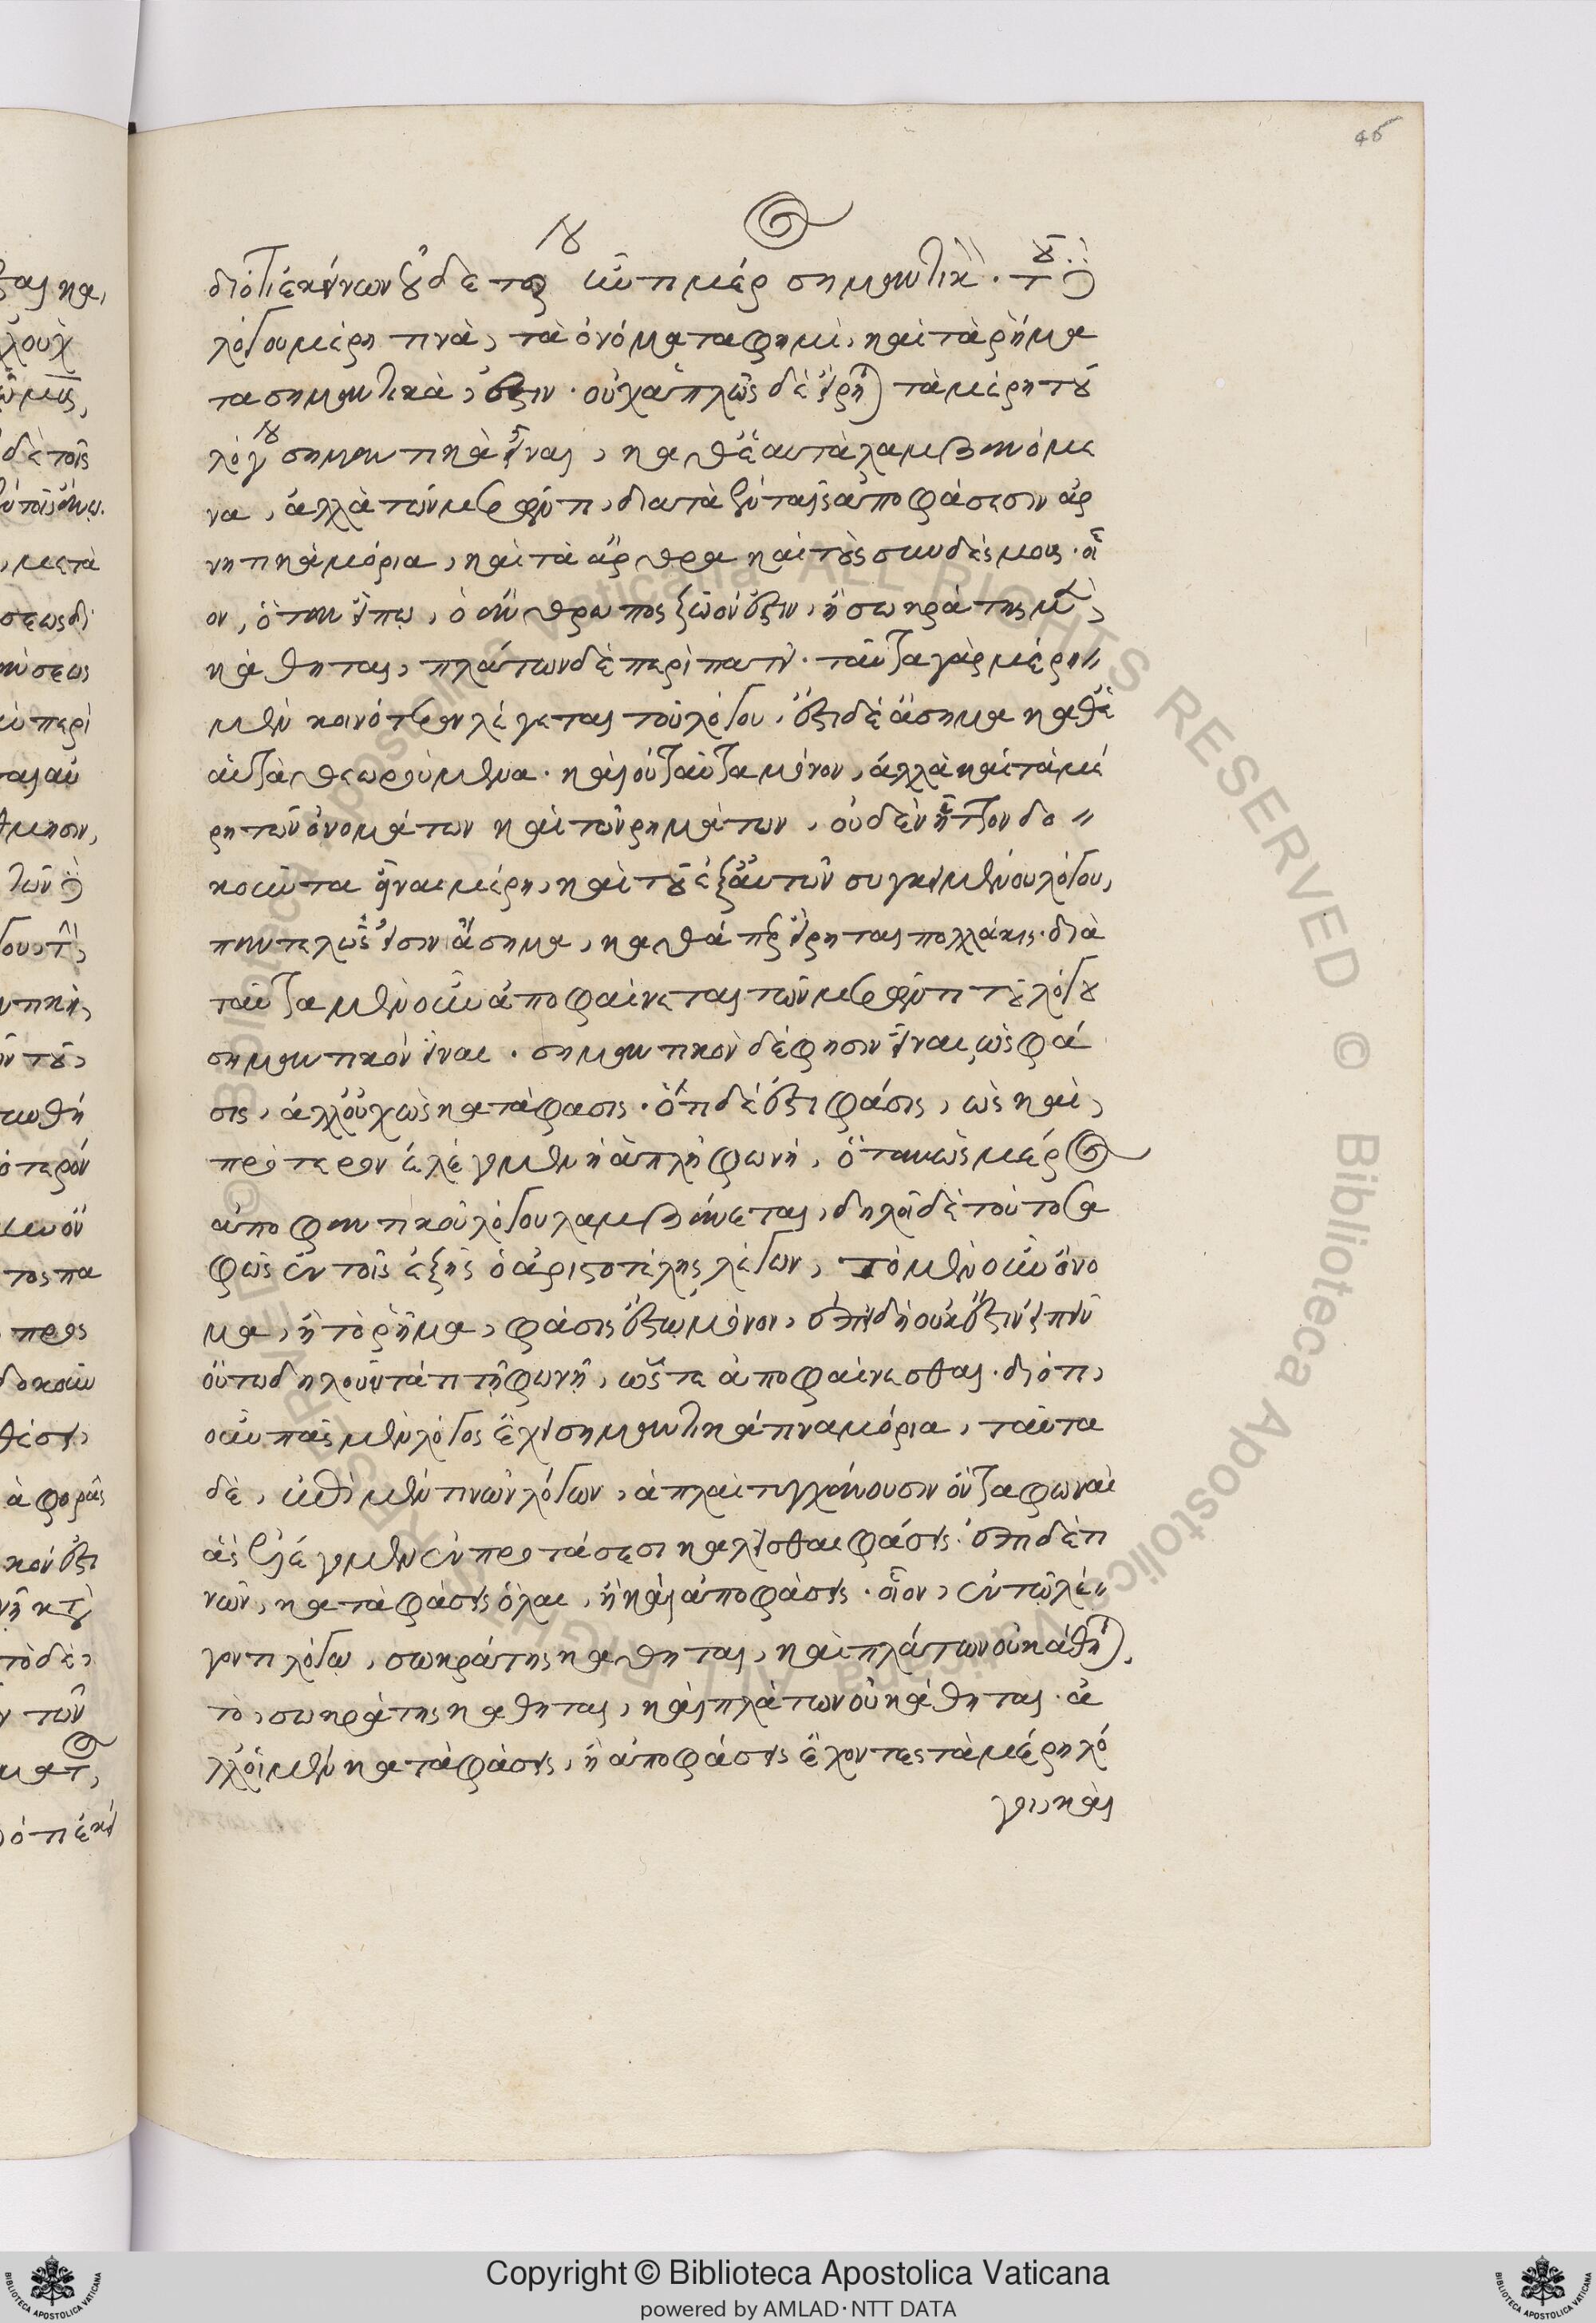 45
λόγου μέρη τινὰ, τὰ ὀνόματα φημὶ, καὶ τὰ ῥήμα
τα σημαντικά ἐστιν. οὐχ ἁπλῶς δὲ εἴρηται τὰ μέρη τοῦ
λόγου σημαντικὰ εἶναι, καθ' ἑαυτὰ λαμβανόμε
να, ἀλλὰ τῶν μερῶν τι, διὰ τὰ ἐν ταῖς ἀποφάσεσιν ἀρ
νητικὰ μόρια, καὶ τὰ ἄρθρα καὶ τοὺς συνδέσμους. οἷ
ον, ὅταν εἴπω, ὁ ἄνθρωπος ζῶον ἐστιν, ἢ σωκράτης μὲν,
κάθηται, πλάτων δὲ περιπατεῖ. ταῦτα γὰρ μέρη
μὲν κοινότερον λέγεται τοῦ λόγου, ἔστι δὲ ἄσημα καθ' ἑ
αυτὰ θεωρούμενα. καὶ οὐ ταῦτα μόνον, ἀλλὰ καὶ τὰ μέ
ρη τῶν ὀνομάτων καὶ τῶν ῥημάτων, οὐδὲν ἧττον δο
κοῦντα εἶναι μέρη, καὶ τοῦ ἐξ αὐτῶν συγκειμένου λόγου,
παντελῶς εἰσιν ἄσημα, καθάπερ εἴρηται πολλάκις. διὰ
ταῦτα μὲν οὖν ἀποφαίνεται τῶν μερῶν τι τοῦ λόγου
σημαντικὸν εἶναι. σημαντικὸν δέ φησιν εἶναι, ὡς φά
σις, ἀλλ' οὐχ ὡς κατάφασις. ὅτι δέ ἐστι φάσις, ὡς καὶ,
πρότερον ἐλέγομεν ἡ ἁπλῆ φωνὴ, ὅταν ὡς μέρος
ἀποφαντικοῦ λόγου λαμβάνεται, δηλοῖ δὲ τοῦτο σα
φῶς ἐν τοῖς ἑξῆς ὁ ἀριστοτέλης λέγων, τὸ μὲν οὖν ὄνο
μα, ἢ τὸ ῥῆμα, φάσις ἔστω μόνον, ἐπειδὴ οὐκ ἔστιν εἰπεῖν
οὕτω δηλοῦντά τι τῇ φωνῇ, ὥστε ἀποφαίνεσθαι. διότι,
οὖν πᾶς μὲν λόγος ἔχει σημαντικά τινα μόρια, ταῦτα
δὲ, ἐπὶ μὲν τινῶν λόγων, ἁπλαῖ τυγχάνουσιν οὖσαι φωναὶ
ἃς ἐλέγομεν ἐν προτάσεσι καλεῖσθαι φάσεις. ἐπὶ δέ τι
νῶν, καταφάσεις ὅλαι, ἢ καὶ ἀποφάσεις. οἷον, ἐν τῷ λέ
γοντι λόγῳ, σωκράτης κάθηται, καὶ πλάτων οὐ κάθηται,
τὸ, σωκράτης κάθηται, καὶ πλάτων οὐ κάθηται. ἀ
λλ' οἱ μὲν καταφάσεις, ἢ ἀποφάσεις ἔχοντες τὰ μέρη λό
γοι, καὶ
Copyright © Biblioteca Apostolica Vaticana
powered by AMLAD·NTT DATA